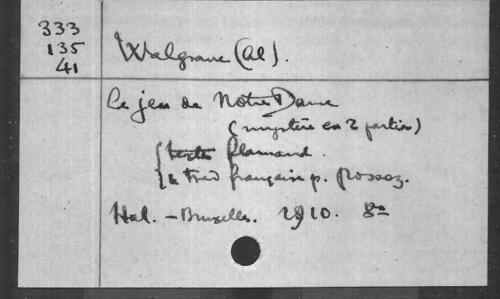 333
135
41
Walgrave (Al).
Le jeu de Notre Dame
(mystère en 2 parties)
texte flamand.
& trad française p. Rossoz.
Hal. – Bruxelles. 1910. 8°